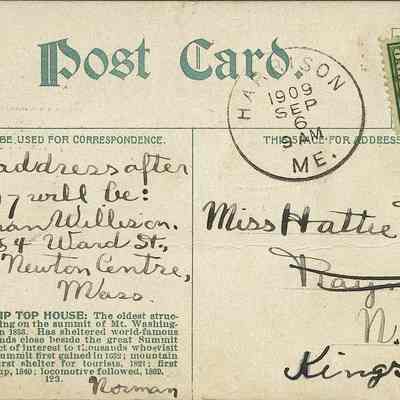 Post Card.
HARRISON
1909
SEP
6
9 AM
ME.
BE USED FOR CORRESPONDENCE.
THIS SPACE FOR ADDRESS
address after
7 will be:
Willison.
54 Ward St.,
Newton Centre,
Mass.
IP TOP HOUSE: The oldest struc-
ing on the summit of Mt. Washing-
in 1853. Has sheltered world-famous
nds close beside the great Summit
ct of interest to thousands who visit
ummit first gained in 1632; mountain
first shelter for tourists, 1821; first
up, 1840; locomotive followed, 1869.
123.
Norman
Miss Hattie
Ray
N.
Kings